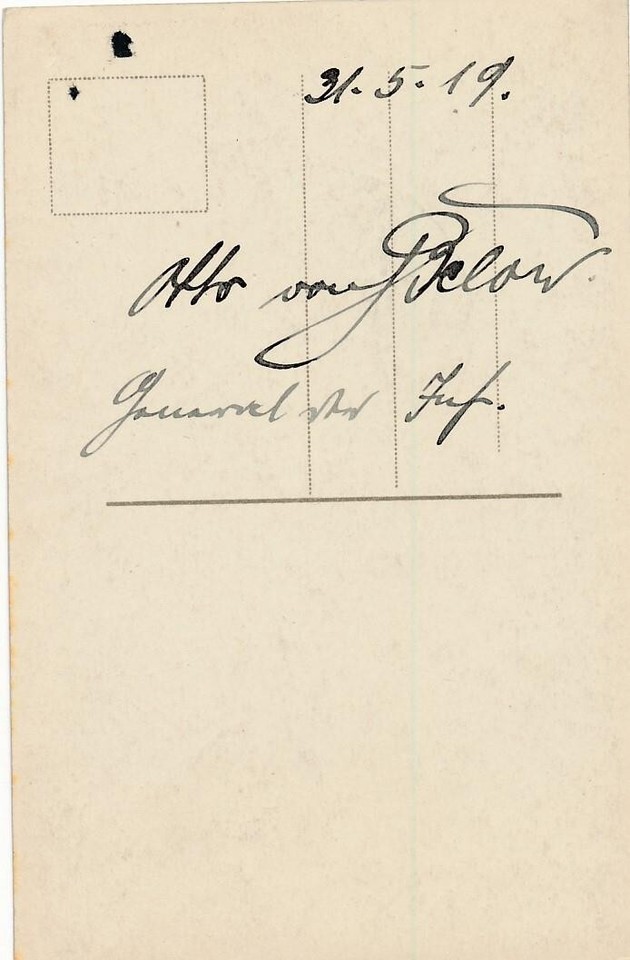 31. 5. 19.
Otto von Below.
General der Inf.